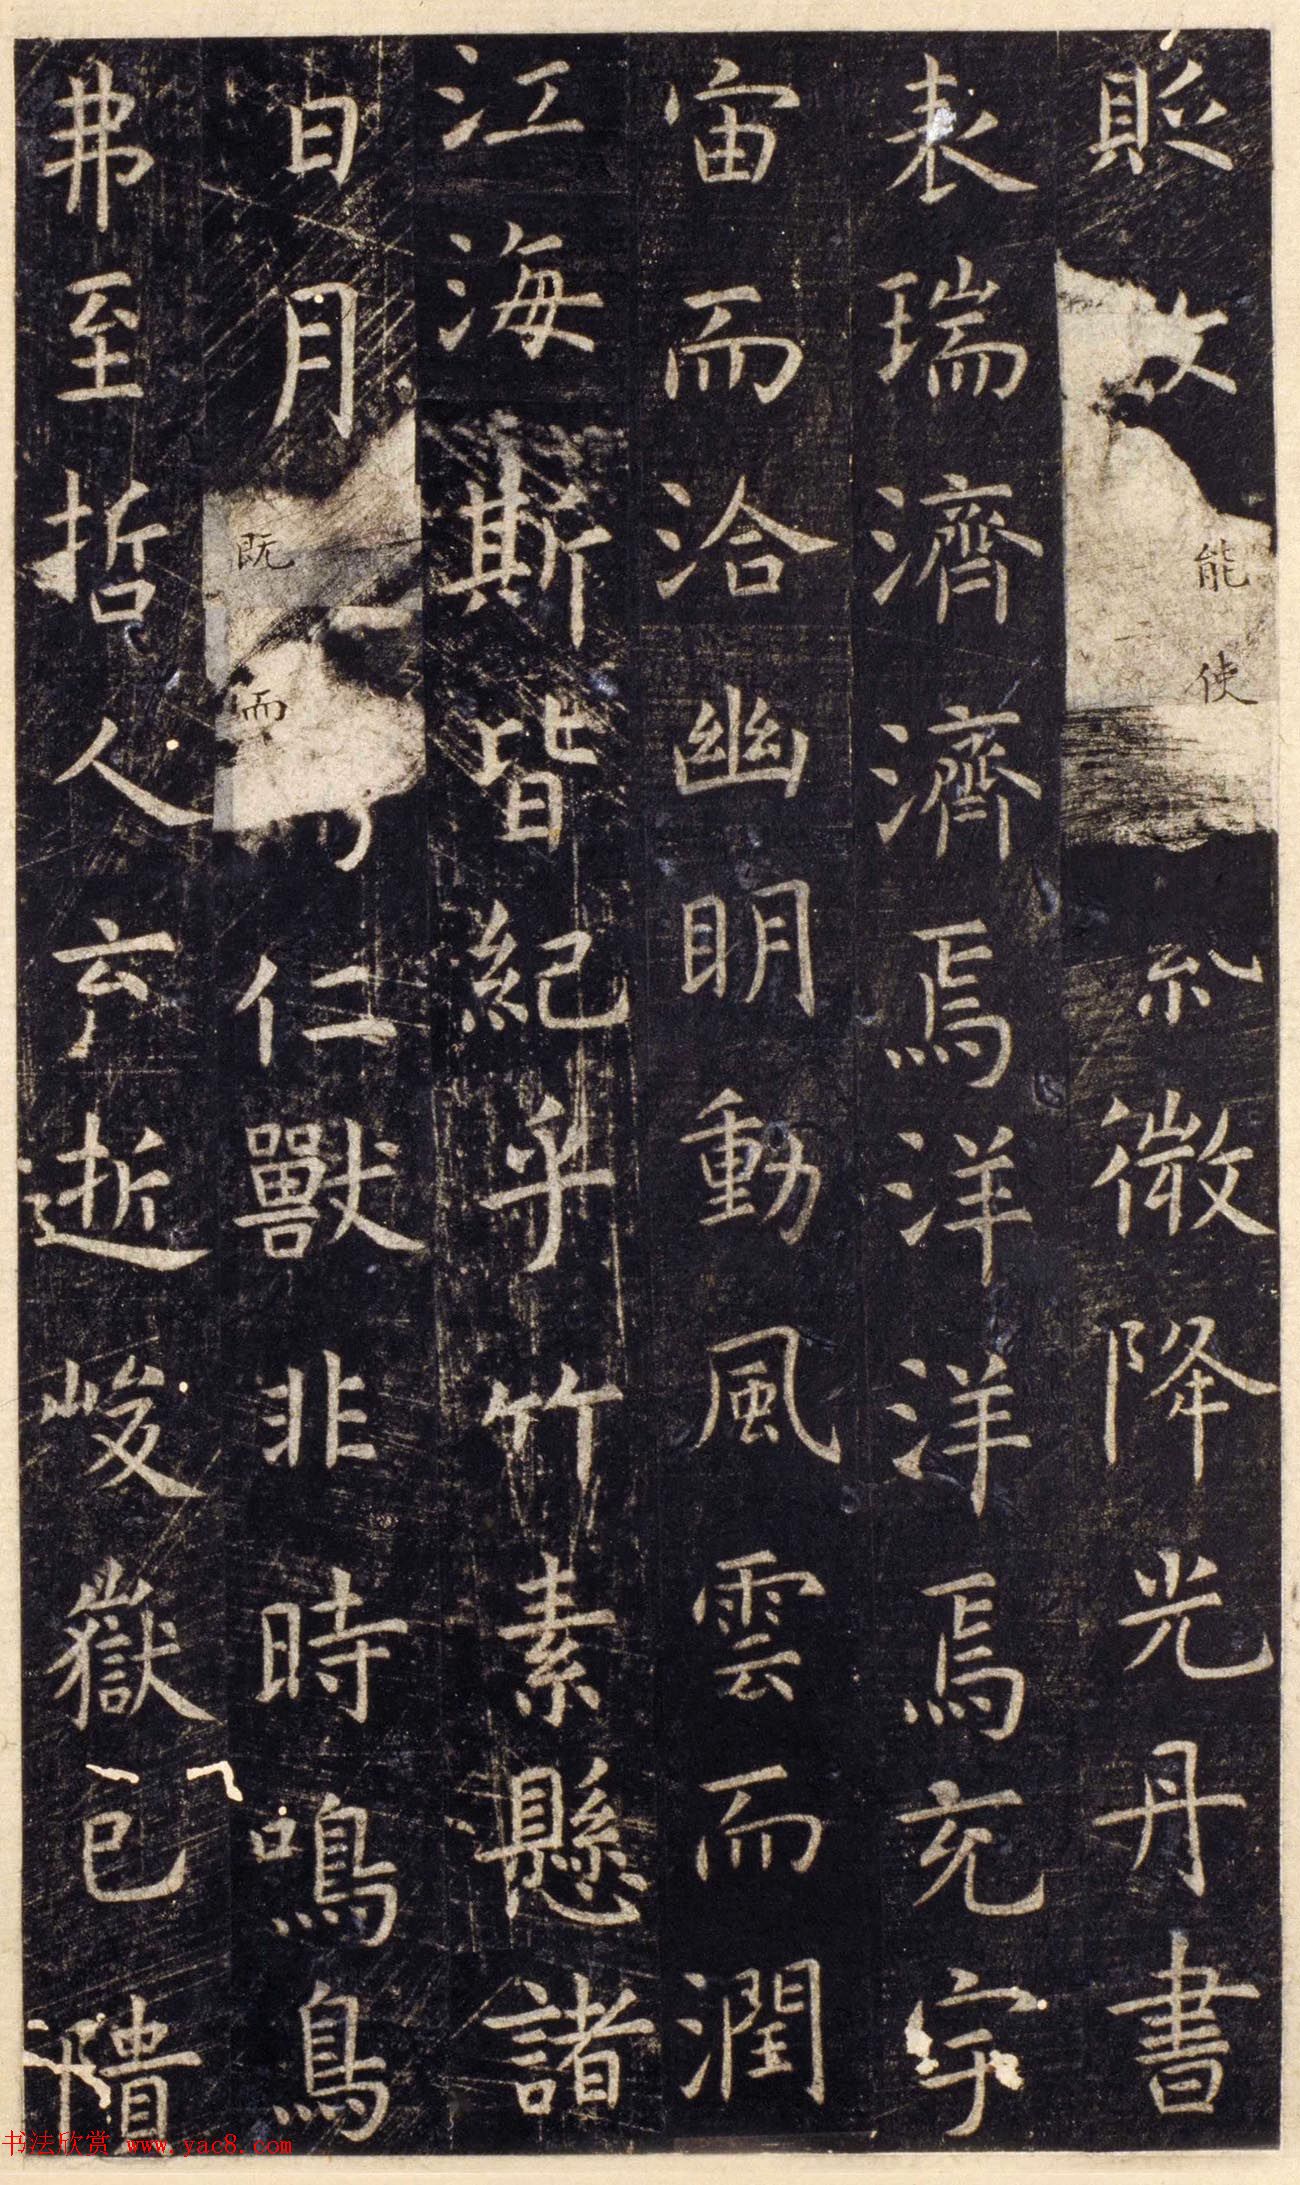 貺故能使紫微降光丹書
表瑞濟濟焉洋洋焉充宇
宙而洽幽明動風雲而潤
江海斯皆紀乎竹素懸諸
日月既而仁獸非時鳴鳥
弗至哲人云逝峻嶽已隤
书法欣赏 www.yac8.com